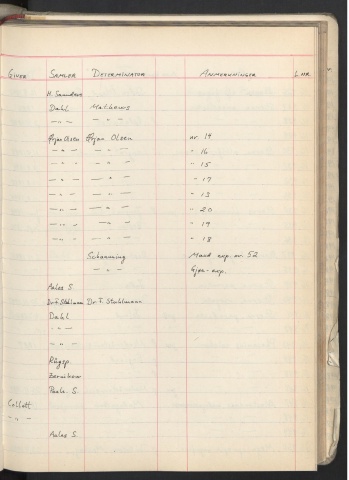 GIVER SAMLER DETERMINATOR ANMERKNINGER L.NR.
H. Saunders
Dahl Mathews
— " — — " —
Ørjan Olsen Ørjan Olsen nr. 14
— " — — " — " 16
— " — — " — " 15
— " — — " — " 17
— " — — " — " 13
— " — — " — " 20
— " — — " — " 19
— " — — " — " 18
Schaanning Maud exp. nr. 52
— " — Gjøa-exp.
Aales S.
Dr. F. Stuhlmann Dr. F. Stuhlmann
Dahl
— " —
— " —
Rügsp.
Pask. S.
Collett
— " —
Aales S.